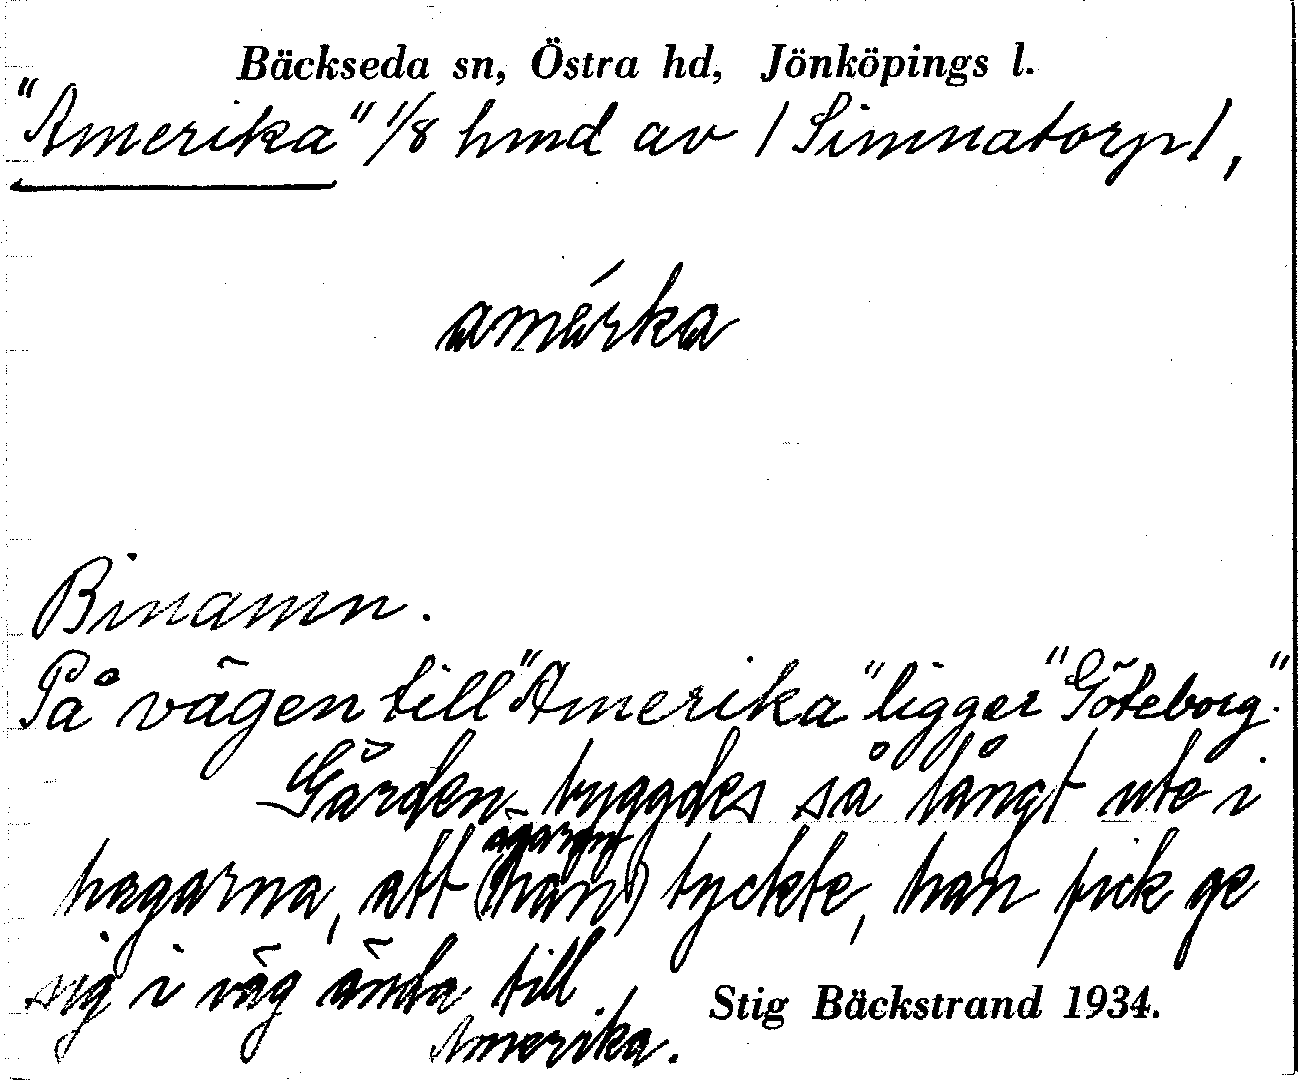 Bäckseda sn, Östra hd, Jönköpings l.
"Amerika" 1/8 hmd av / Simnatorp/,
amérka
Binamn.
På vägen till "Amerika" ligger "Göteborg."
Gården byggdes så långt ute i
ägaren
hagarna, att (han) tyckte, han fick ge
sig i väg ända till
Amerika.
Stig Bäckstrand 1934.